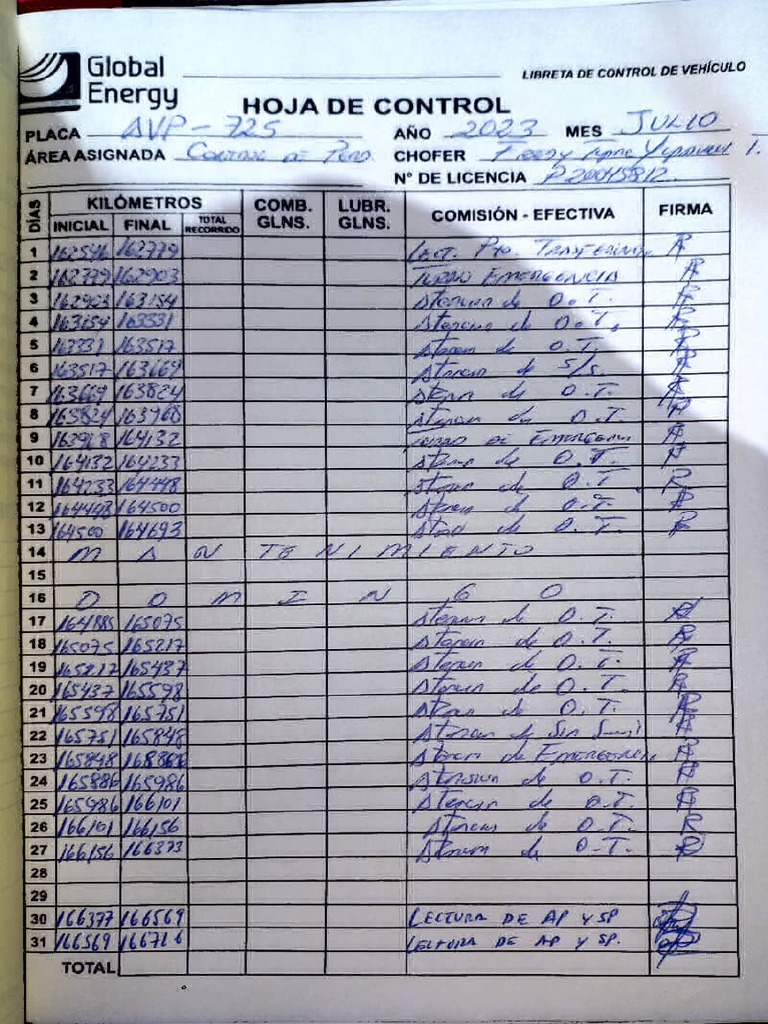 Global
Energy
LIBRETA DE CONTROL DE VEHÍCULO
HOJA DE CONTROL
PLACA AVP-725 AÑO 2023 MES JULIO
ÁREA ASIGNADA Control de CHOFER
N° DE LICENCIA P20045812
DÍAS KILÓMETROS COMB. GLNS. LUBR. GLNS. COMISIÓN - EFECTIVA FIRMA
INICIAL FINAL TOTAL RECORRIDO
1 162779 LECT.
2 162779 162903 TURNO EMERGENCIA
3 162903 163154 Atencion de O.T.
4 163154 163331 Atencion de O.T.
5 163331 163517 Atencion de O.T.
6 163517 163669 Atencion de S/s.
7 163669 163824 de O.T.
8 163824 163968 Atencion de O.T.
9 163968 164132 TURNO DE EMERGENCIA
10 164132 164233 de O.T.
11 164233 164448 de O.T.
12 164448 164500 de O.T.
13 164500 164693 de O.T.
14 MANTENIMIENTO
15
16 DOMINGO
17 164885 165075 Atencion de O.T.
18 165075 165217 Atencion de O.T.
19 165217 165437 Atencion de O.T.
20 165437 165598 Atencion de O.T.
21 165598 165751 de O.T.
22 165751 165848 Atencion de
23 165848 de EMERGENCIA
24 165886 165986 Atension de O.T.
25 165986 166101 Atencion de O.T.
26 166101 166156 Atencion de O.T.
27 166156 166373 Atencion de O.T.
28
29
30 166377 166569 LECTURA DE AP Y SP
31 166569 166716 LECTURA DE AP Y SP.
TOTAL